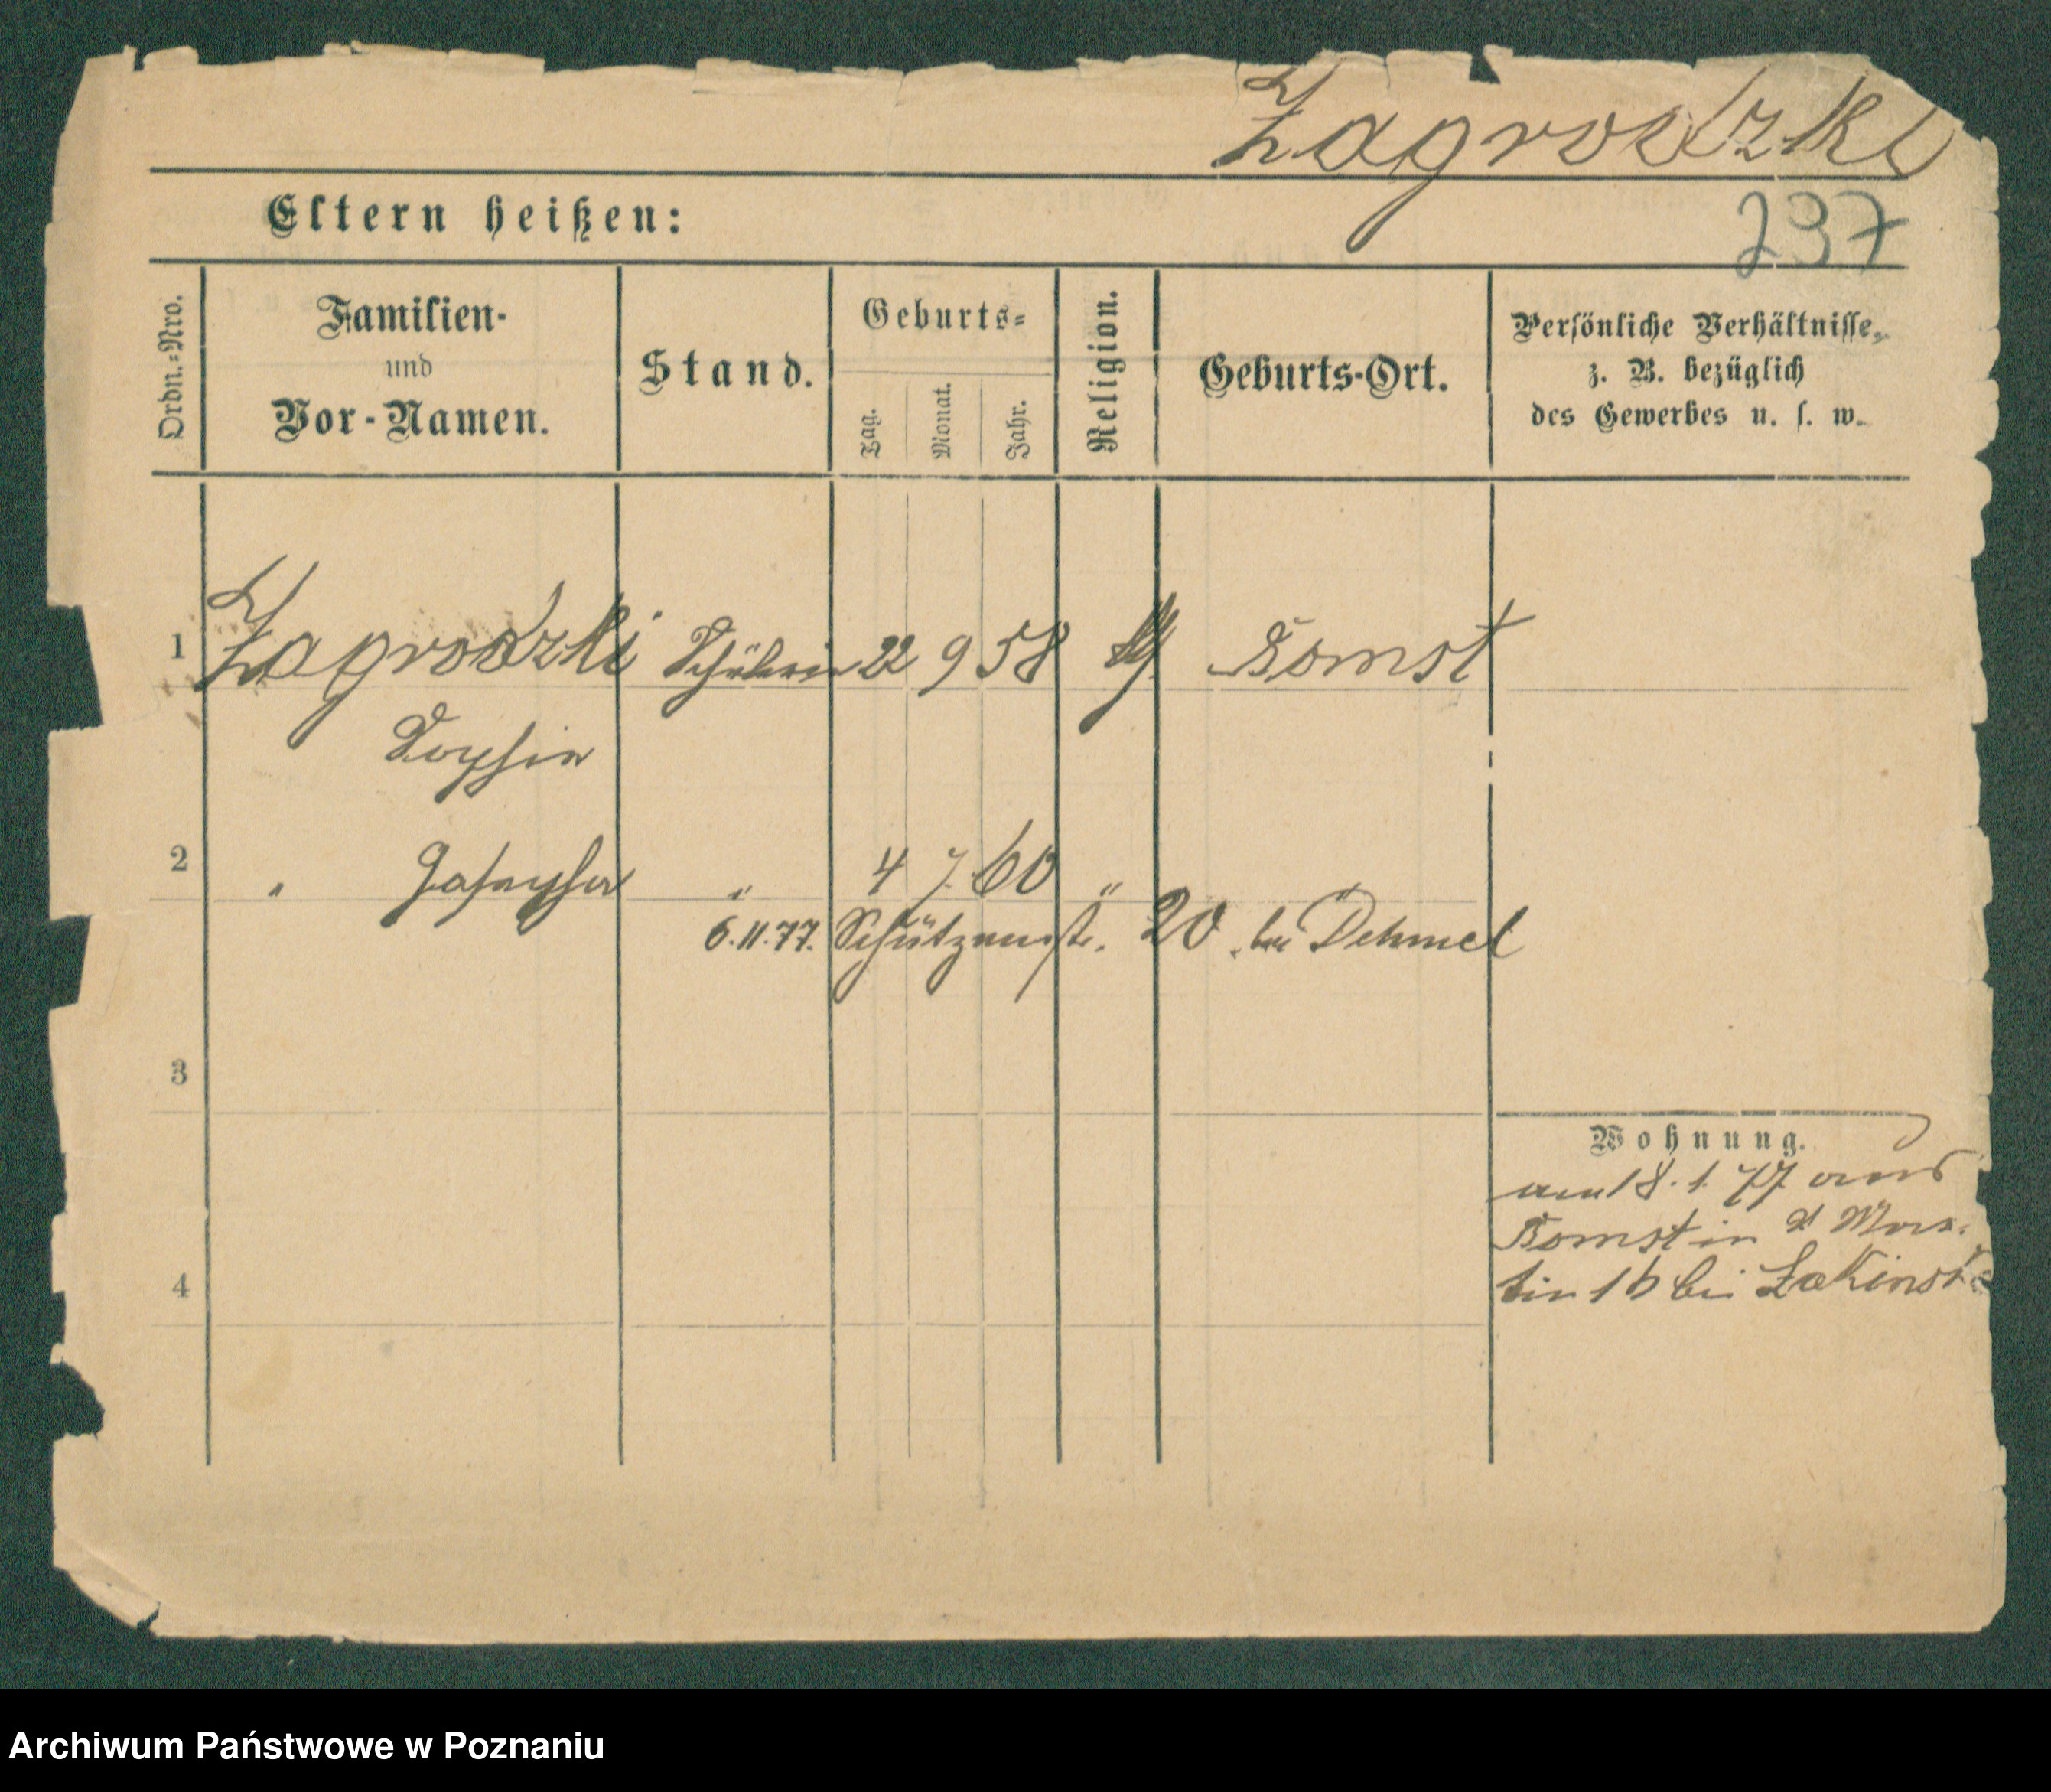 Zagrodzki
237
Eltern heißen:
Ordn.=Nro.
Familien-
und
Vor-Namen.
Stand.
Geburts=
Tag.
Monat.
Jahr.
Religion.
Geburts-Ort.
Persönliche Verhältnisse,
z. B. bezüglich
des Gewerbes u. s. w.
1 Zagrodzki Schülerin 22 9 58 Bomst
Sophie
2 " " 4 7. 60 "
6.11.77. Schützenstr. 20 bei Dehmel
3
Wohnung.
am 18.1.77 aus
Bomst in St Mar-
tin 16 bei
4
Archiwum Państwowe w Poznaniu